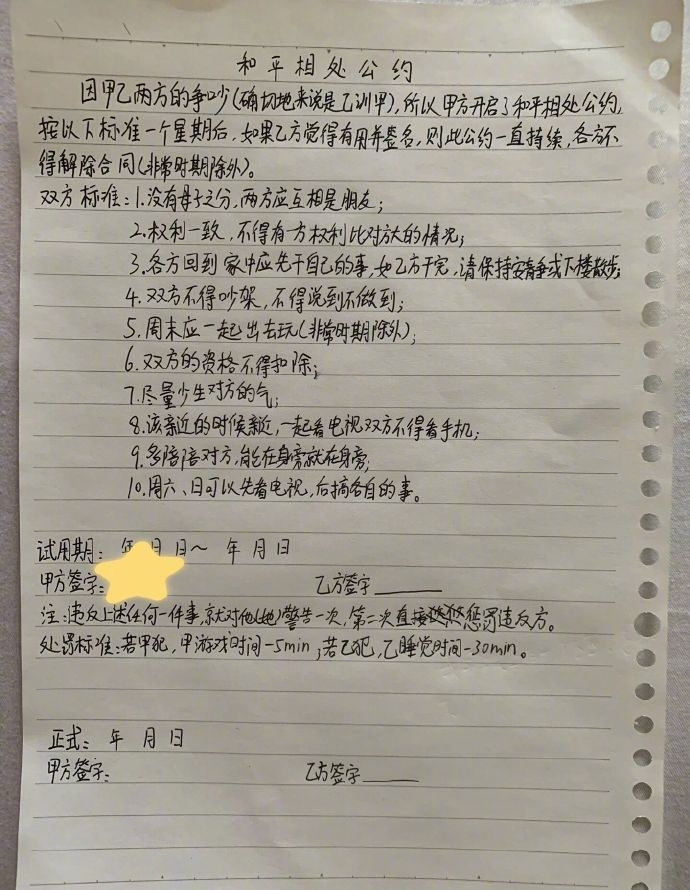 和平相处公约
因甲乙两方的争吵(确切地来说是乙训甲),所以甲方开启了和平相处公约,
按以下标准一个星期后,如果乙方觉得有用并签名,则此公约一直持续,各方不
得解除合同(非常时期除外)。
双方标准:1.没有母子之分,两方应互相是朋友;
2.权利一致,不得有一方权利比对方大的情况;
3.各方回到家中应先干自己的事,如乙方干完,请保持安静或下楼散步;
4.双方不得吵架,不得说到不做到;
5.周末应一起出去玩(非常时期除外);
6.双方的资格不得扣除;
7.尽量少生对方的气;
8.该亲近的时候亲近,一起看电视双方不得看手机;
9.多陪陪对方,能在身旁就在身旁;
10.周六、日可以先看电视,后搞各自的事。
试用期: 年 月 日~ 年 月 日
甲方签字: 乙方签字
注:违反上述任何一件事,就对他(她)警告一次,第二次直接惩罚违反方。
处罚标准:若甲犯,甲游戏时间-5min;若乙犯,乙睡觉时间-30min。
正式: 年 月 日
甲方签字: 乙方签字